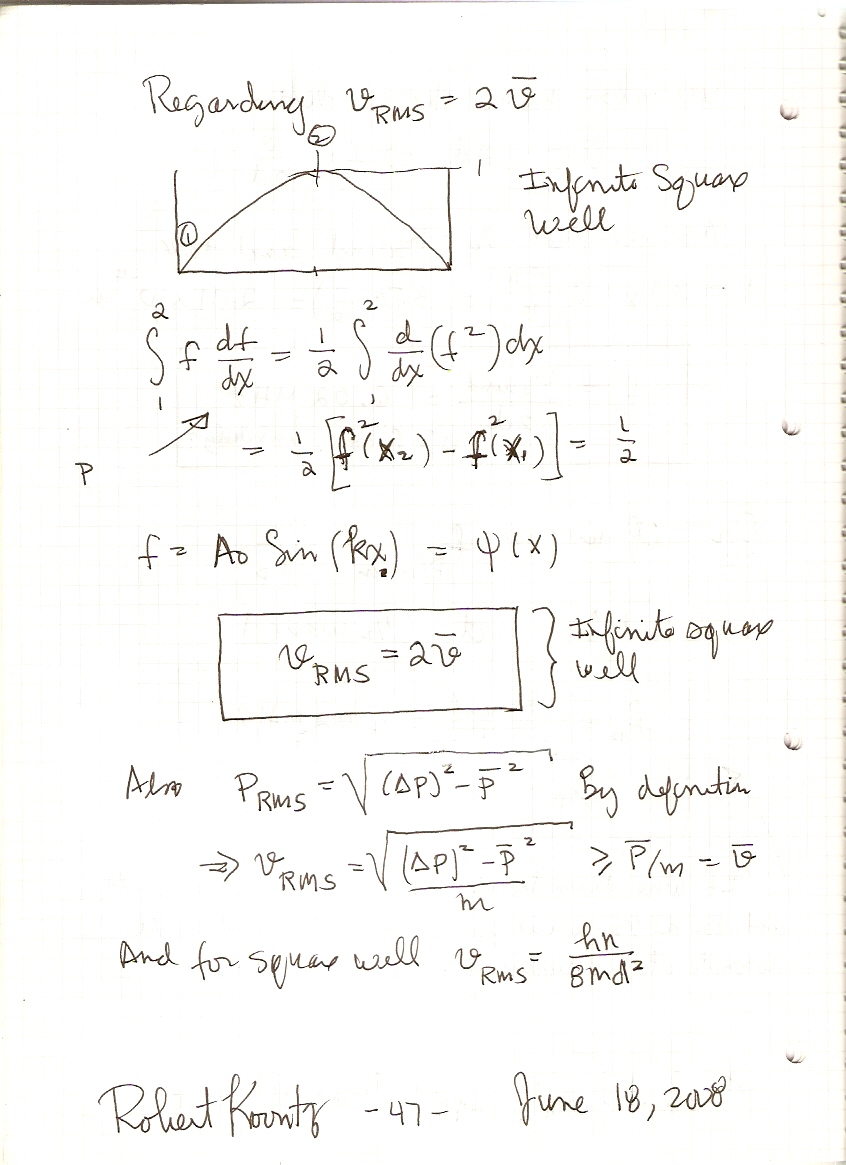 Regarding v_RMS = 2 v̄
②
1
①
Infinite Square
Well
∫₁² f df/dx = 1/2 ∫₁² d/dx (f²) dx
P
= 1/2 [f²(x₂) - f²(x₁)] = 1/2
f = A₀ Sin (kx) = ψ(x)
v_RMS = 2v̄
Infinite square
well
Also P_RMS = √((ΔP)² - P̄²) By definition
⇒ v_RMS = √((ΔP)² - P̄²)/m ≥ P̄/m = v̄
And for square well v_RMS = hn/8md²
Robert Koontz - 47 - June 18, 2008